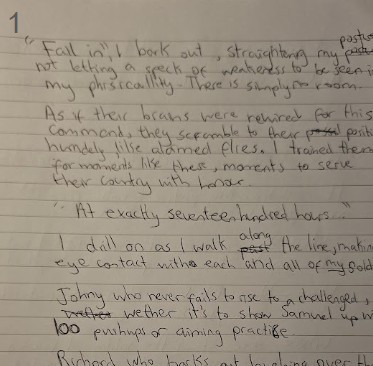 1
"Fall in", I bark out, straightening my postu
not letting a speck of weakeness to be seen i
my phisicallity. There is simply no room.
As if their brains were rewired for this
command, they scramble to their positi
like alarmed flies. I trained them
for moments like these, moments to serve
their country with honor.
"At exactly seventeen hundred hours..."
I drill on as I walk along the line, makin
eye contact with each and all of my sold
Johny who never fails to rise to a challenged,
wether it's to show Samuel up w
100 pushups or aiming practise
Richard who